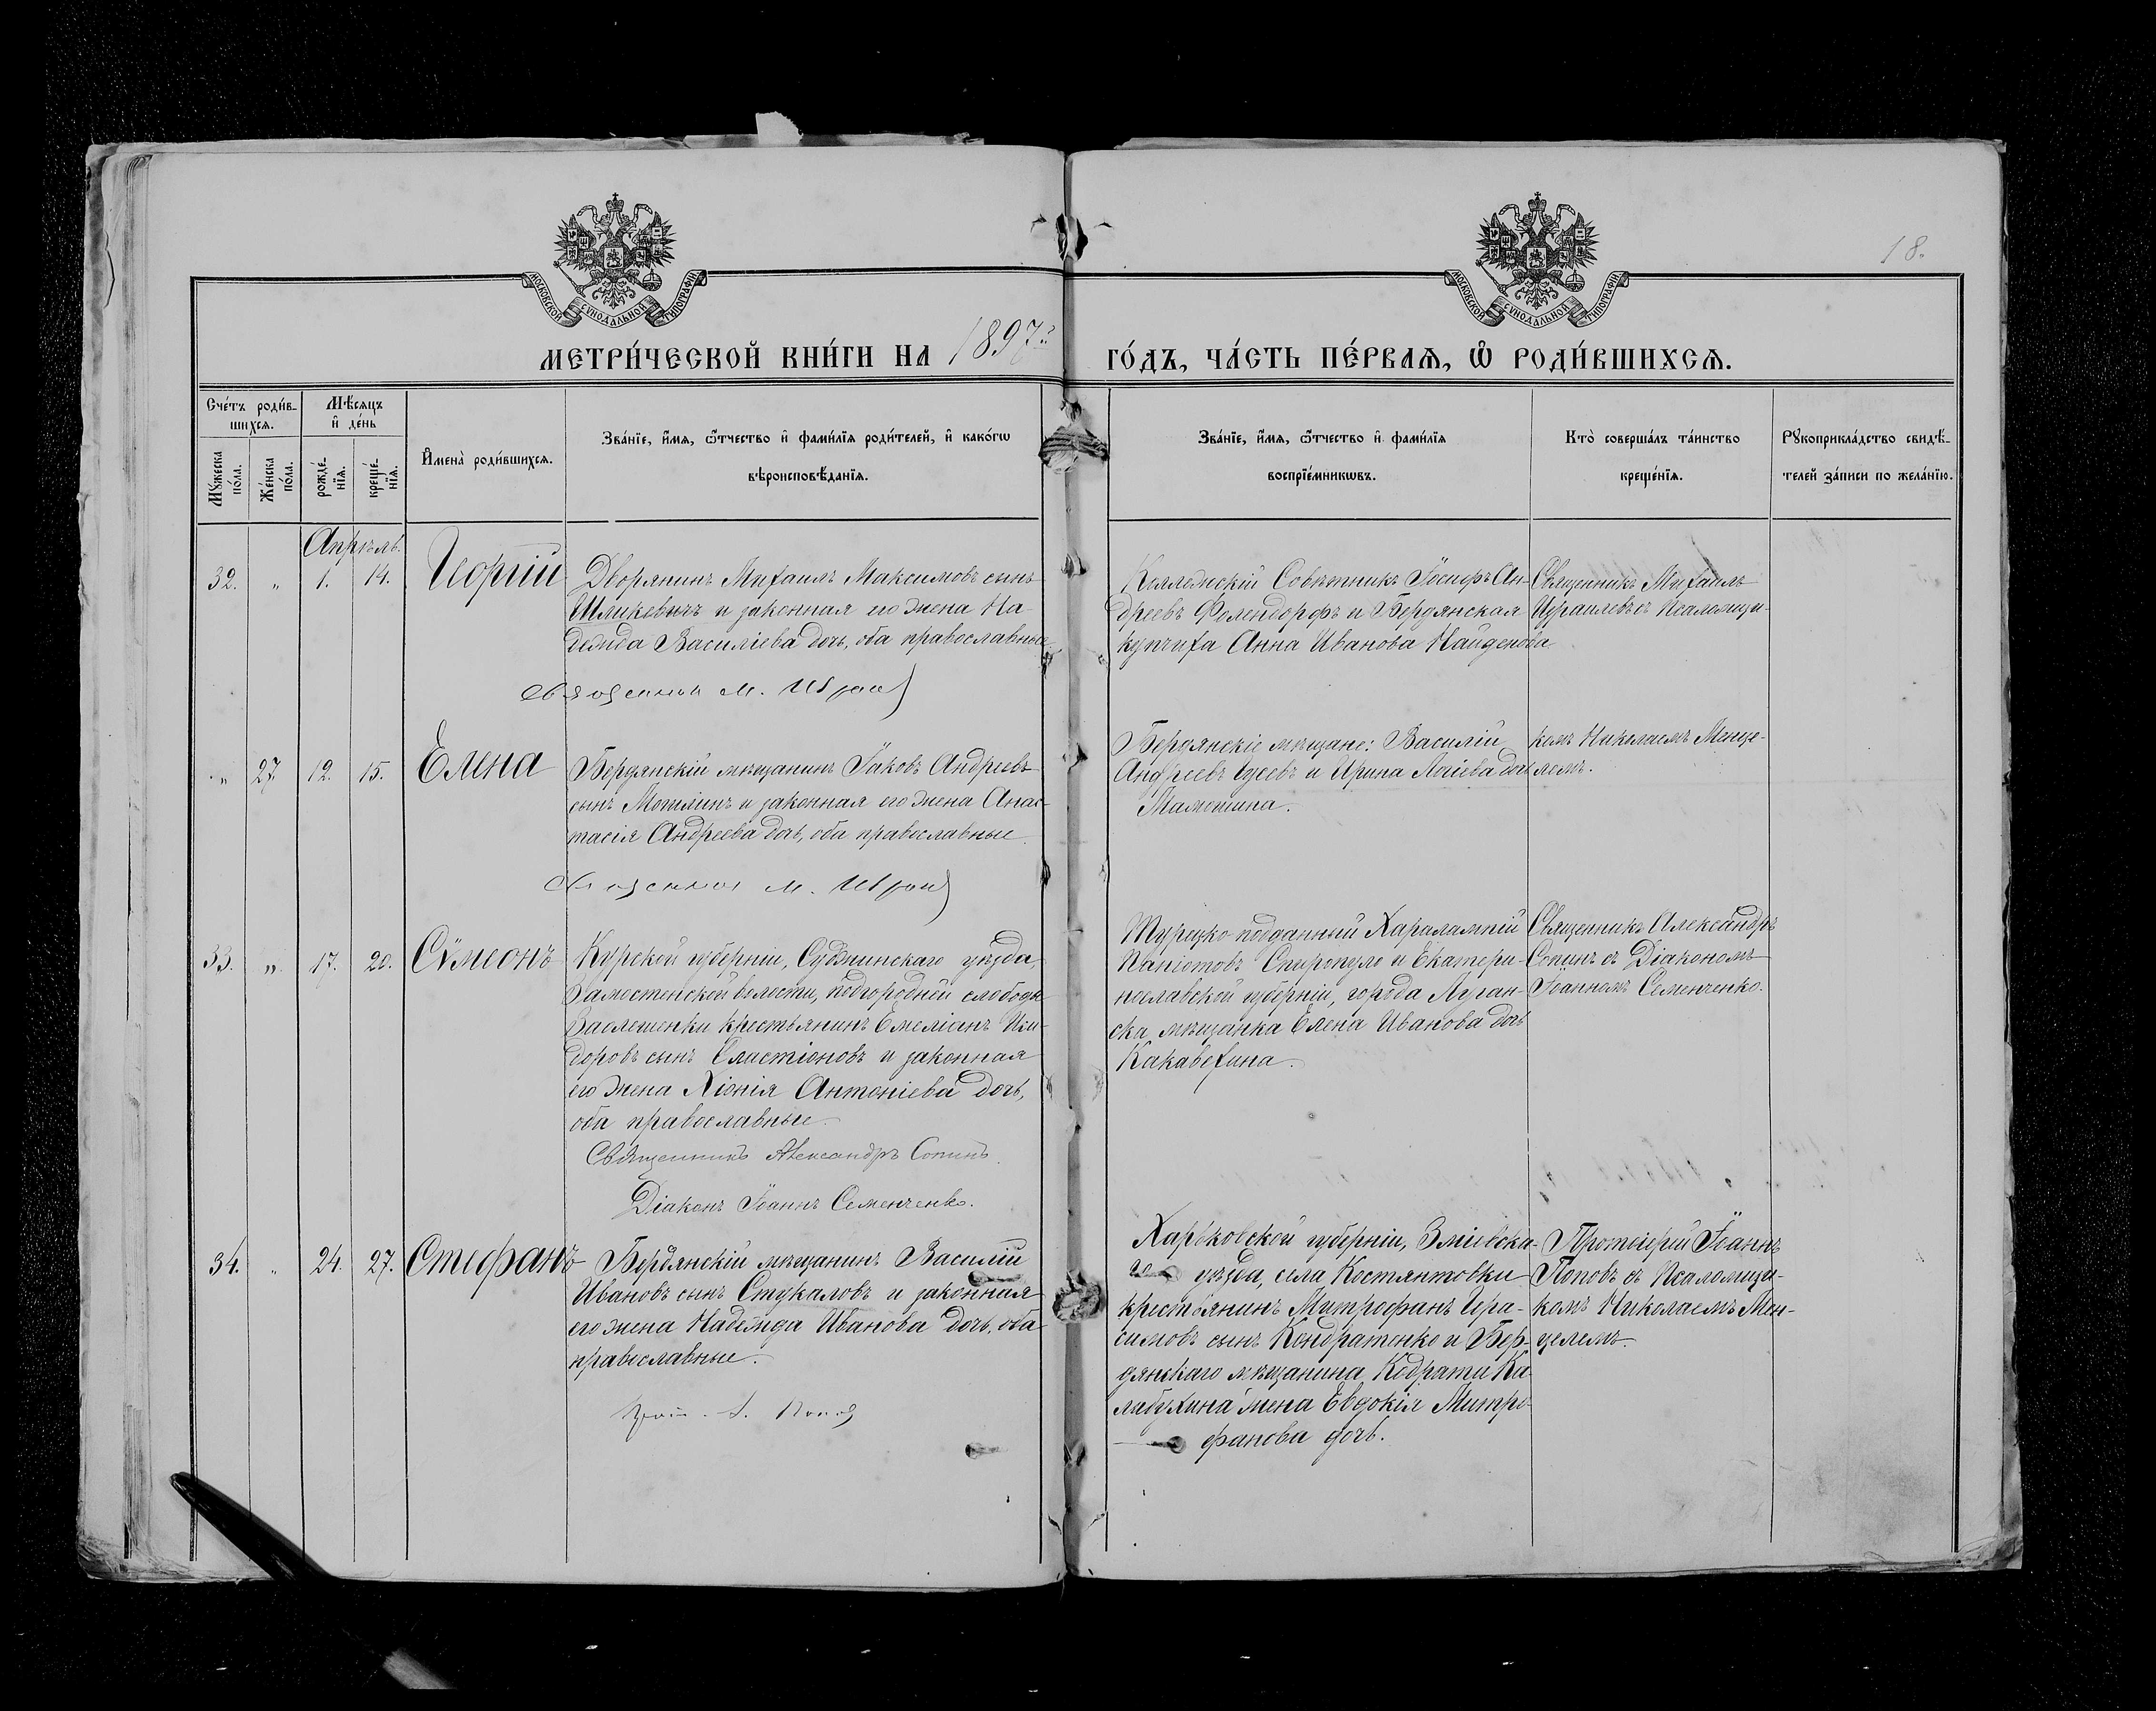 18.
МОСКОВСКОЙ СУНОДАЛЬНОЙ ТИПОГРАФІИ
МОСКОВСКОЙ СУНОДАЛЬНОЙ ТИПОГРАФІИ
МЕТРИ́ЧЕСКОЙ КНИ́ГИ НА 1897й ГО́ДЪ, ЧА́СТЬ ПЕ́РВАѦ, Ѡ РОДИ́ВШИХСѦ.
Сче́тъ роди́в-
шихсѧ.
Мꙋ́жеска по́ла.
Же́нска по́ла.
Мѣ́сѧцъ
и҆ де́нь
рожде́-
нїѧ.
креще́-
нїѧ.
И҆мена̀ роди́вшихсѧ.
Зва́нїе, и҆́мѧ, ѻ҆́тчество и҆ фами́лїѧ роди́телей, и҆ како́гѡ
вѣроисповѣ́данїѧ.
Зва́нїе, и҆́мѧ, ѻ҆́тчество и҆ фами́лїѧ
воспрїе́мникѡвъ.
Кто̀ соверша́лъ та́инство
креще́нїѧ.
Рꙋкоприкла́дство свидѣ́-
телей за́писи по жела́нїю.
Апрѣль.
32. " 1. 14. Георгій
Дворянинъ Михаилъ Максимовъ сынъ
Шликевичъ и законная его жена На-
дежда Василіева дочь, оба православные
Священник М.
Коллежскій Совѣтникъ Іосифъ Ан-
дреевъ Фолендорфъ и Бердянская
купчиха Анна Иванова Найденова
Священникъ Михаилъ
Израилевъ съ Псаломщи-
" 27. 12. 15. Елена
Бердянскій мѣщанинъ Іаковъ Андреевъ
сынъ Могилинъ и законная его жена Анас-
тасія Андреева дочь, оба православные.
Священник М.
Бердянскіе мѣщане: Василій
Андреевъ и Ирина дочь
Мамонтина.
комъ Николаемъ Менце-
лемъ.
33. " 17. 20. Сѵмеонъ
Курской губерніи, Суджинскаго уѣзда,
Замостенской волости, подгородней слободы
Заолешенки крестьянинъ Емеліанъ Иси-
доровъ сынъ и законная
его жена Хіонія Антоніева дочь,
оба православные.
Священникъ Александръ Сопинъ.
Діаконъ Іоаннъ Семенченко.
Турецко-подданный Харалампій
Паніотовъ Спиропуло и Екатери-
нославской губерніи, города Луган-
ска, мѣщанка Елена Иванова дочь
Какавехина.
Священникъ Александръ
Сопинъ съ Діакономъ
Іоанномъ Семенченко.
34. " 24. 27. Стефанъ
Бердянскій мѣщанинъ Василій
Ивановъ сынъ Стукаловъ и законная
его жена Надежда Иванова дочь, оба
православные.
Прот. І. Попов
Харьковской губерніи, Зміевска-
го уѣзда, села Костянтовки
крестьянинъ Митрофанъ Гера-
симовъ сынъ Кондратенко и Бер-
дянскаго мѣщанина Кодрата Ка-
лабухина жена Евдокія Митро-
фанова дочь.
Протоіерей Іоаннъ
Поповъ съ Псаломщи-
комъ Николаемъ Мен-
целемъ.